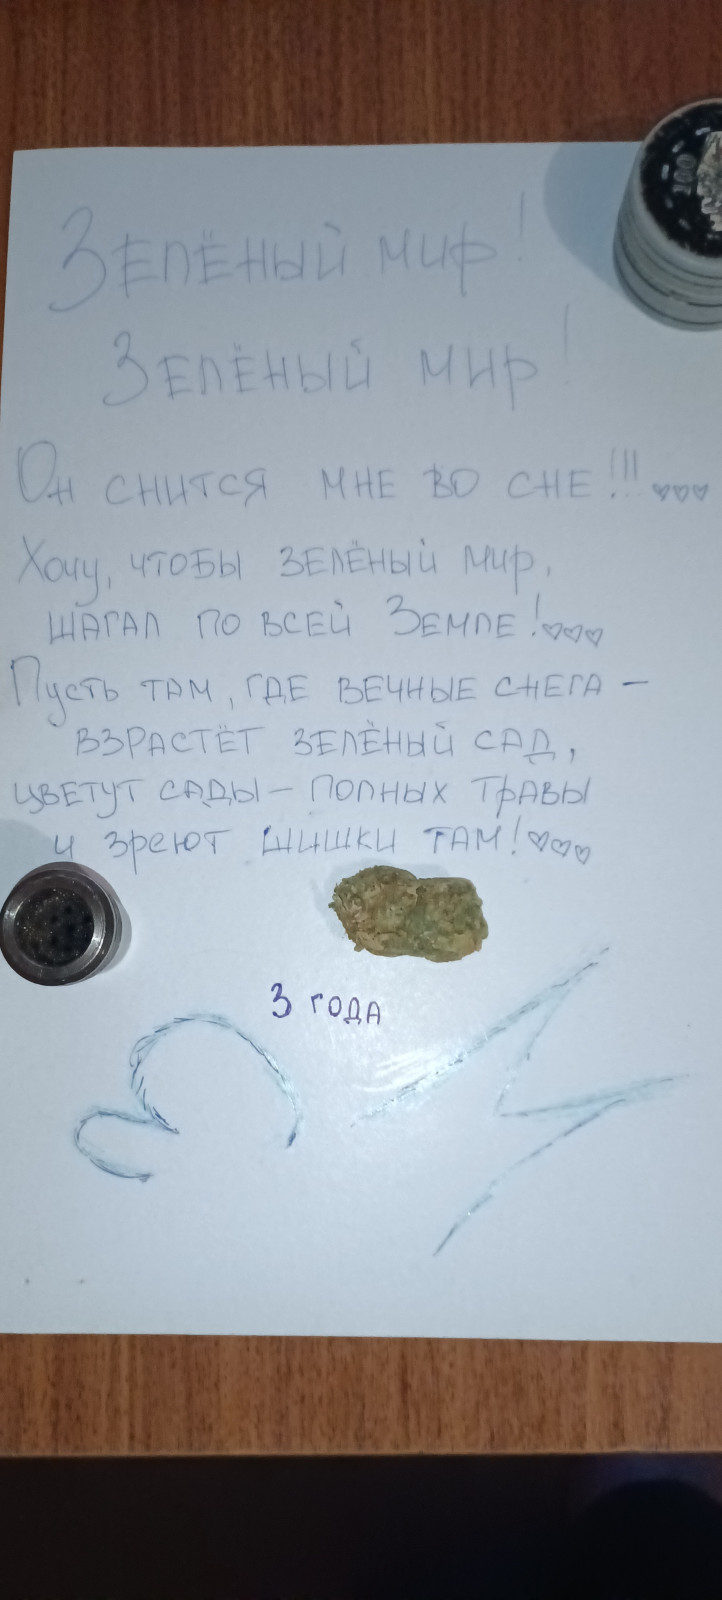 Зелёный мир!
Зелёный мир!
Он снится мне во сне!!!♡♡♡
Хочу, чтобы зелёный мир,
шагал по всей Земле!♡♡♡
Пусть там, где вечные снега –
взрастёт зелёный сад,
цветут сады – полных травы
и зреют шишки там!♡♡♡
3 года
100